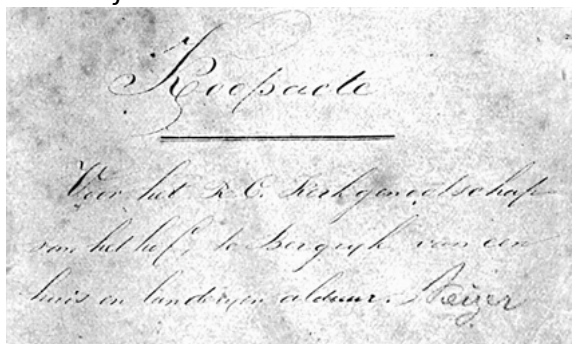 Koopacte
Voor het R. C. Kerkgenootschap
van het hof, te Bergeyk van een
huis en landeryen aldaar. Keijzer